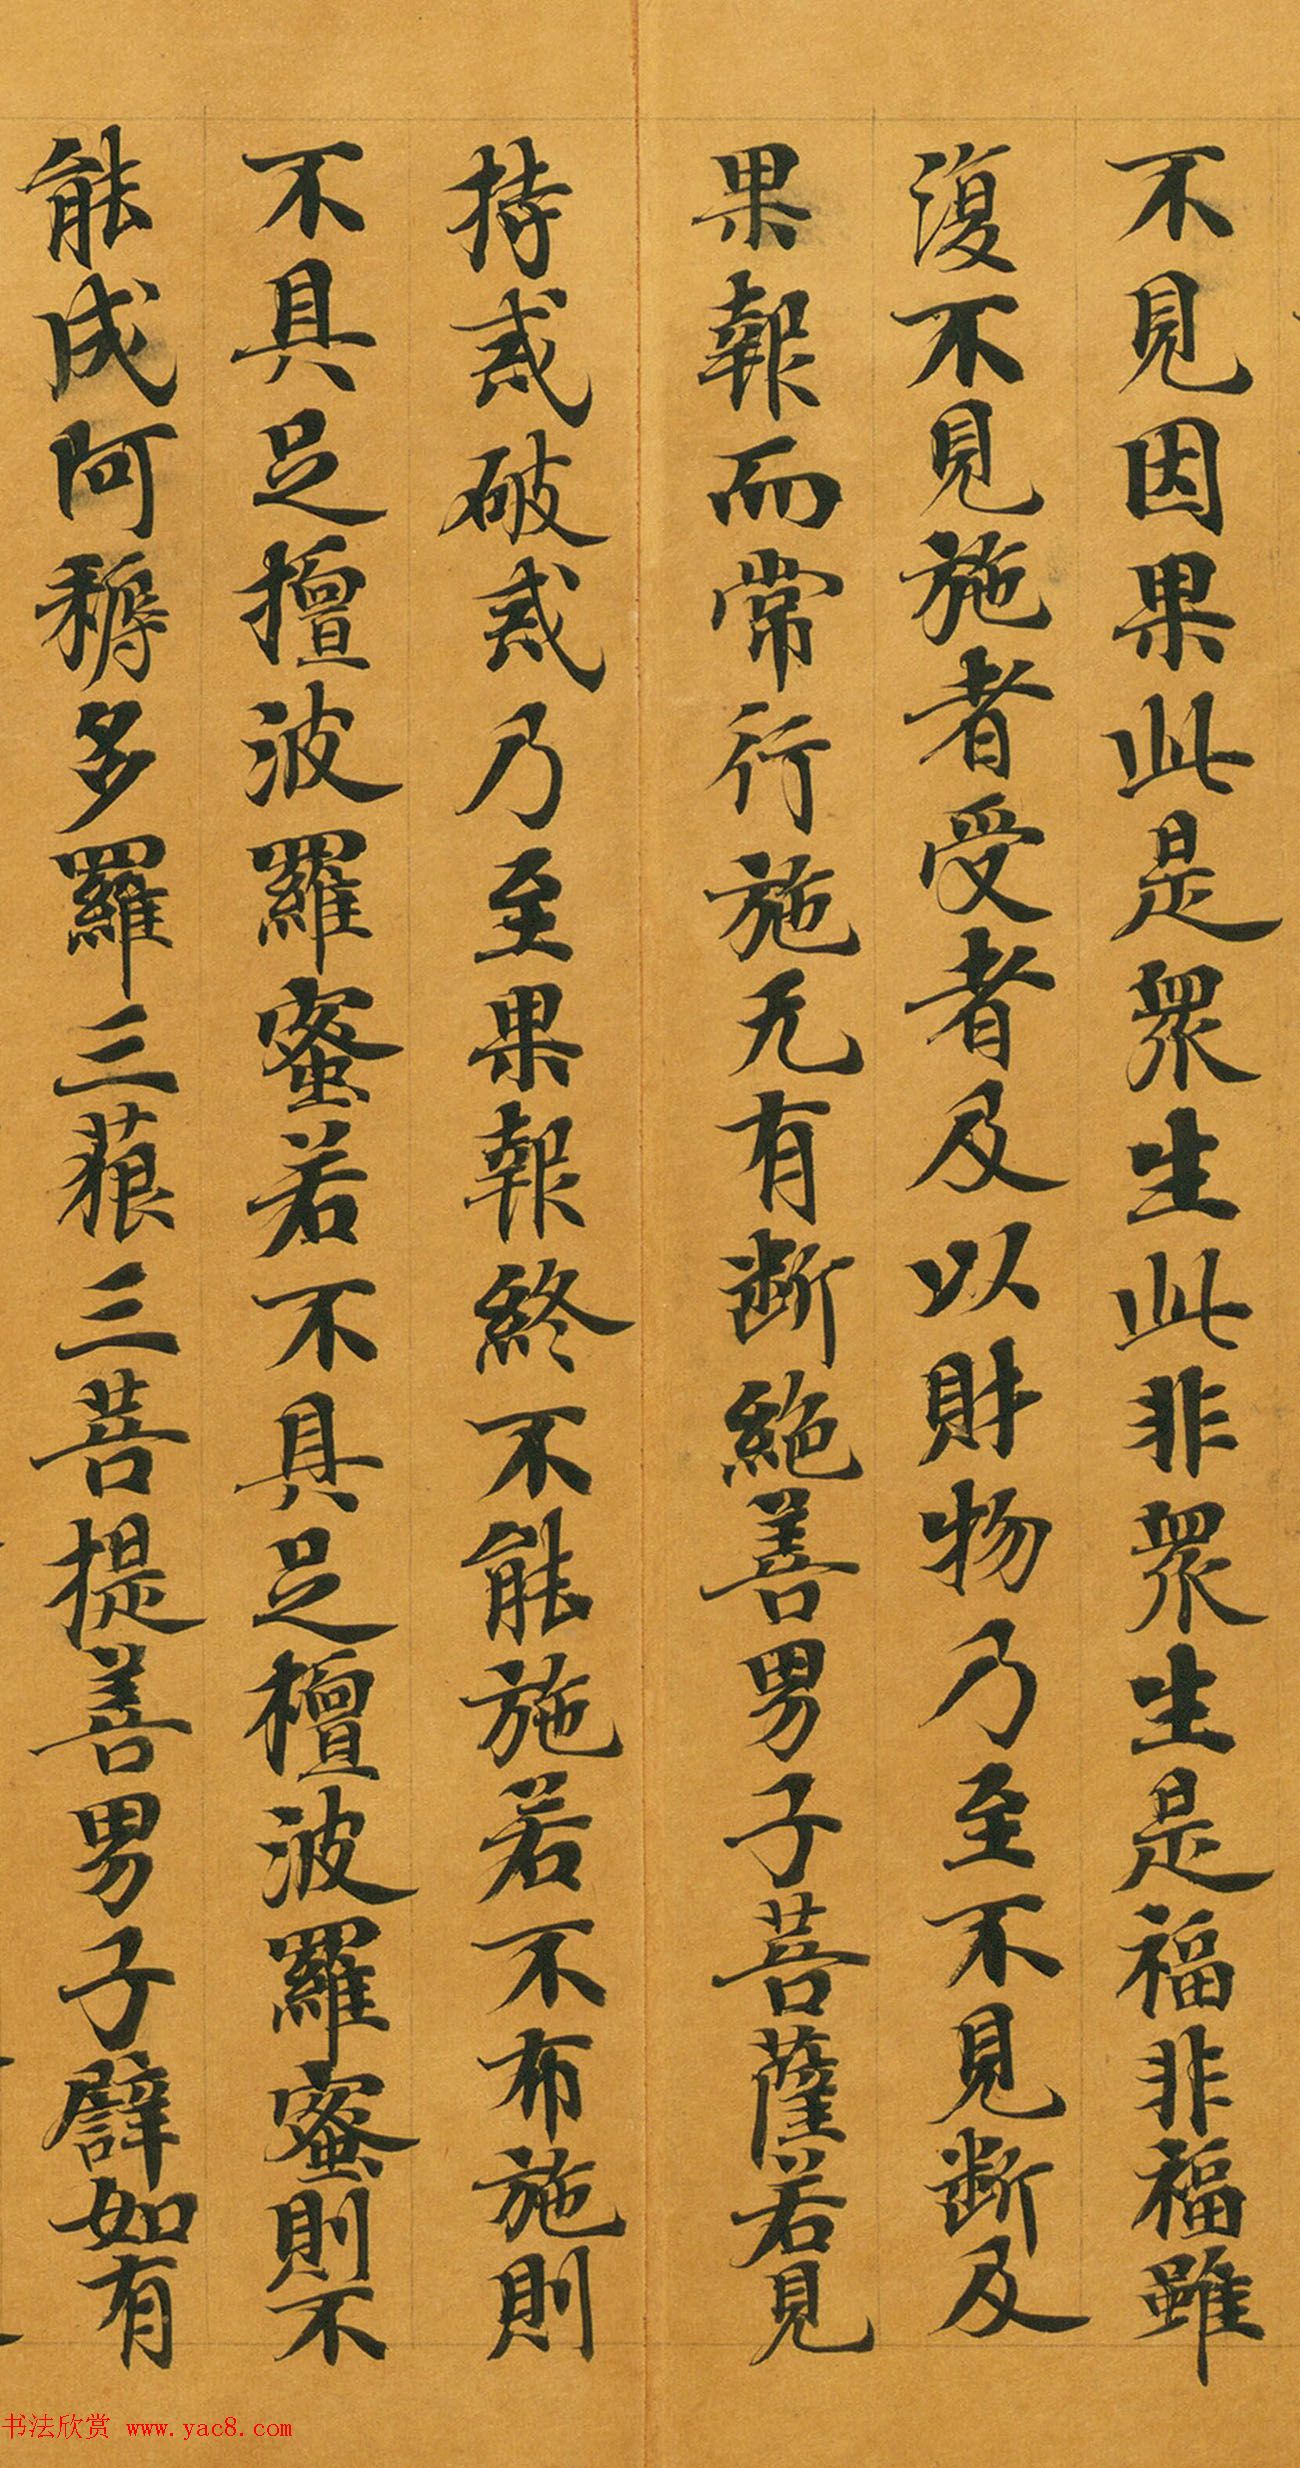 不見因果此是衆生此非衆生是福非福雖
復不見施者受者及以財物乃至不見断及
果報而常行施无有断絶善男子菩薩若見
持戒破戒乃至果報終不能施若不布施則
不具足檀波羅蜜若不具足檀波羅蜜則不
能成阿耨多羅三藐三菩提善男子譬如有
书法欣赏 www.yac8.com